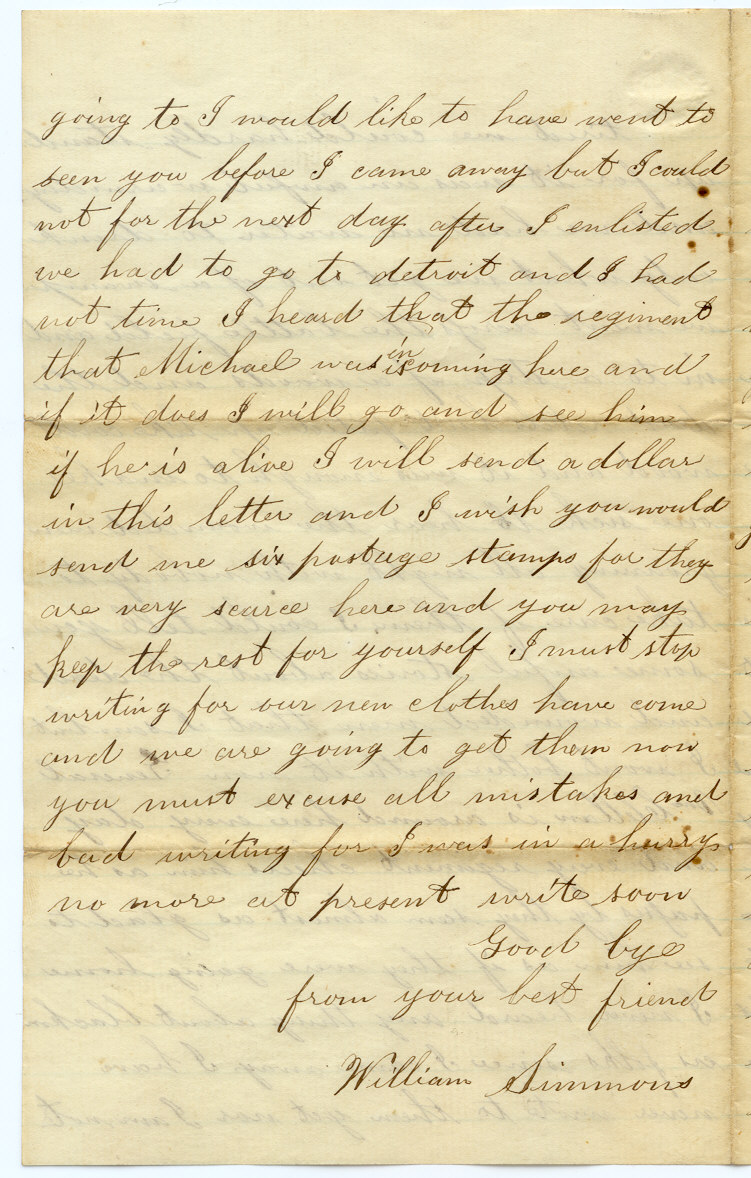 going to I would like to have went to
seen you before I came away but I could
not for the next day after I enlisted
we had to go to detroit and I had
not time I heard that the regiment
that Michael was in is coming here and
if it does I will go and see him
if he is alive I will send a dollar
in this letter and I wish you would
send me six postage stamps for they
are very scarce here and you may
keep the rest for yourself I must stop
writing for our new clothes have come
and we are going to get them now
you must excuse all mistakes and
bad writing for I was in a hurry
no more at present write soon
Good bye
from your best friend
William Simmons